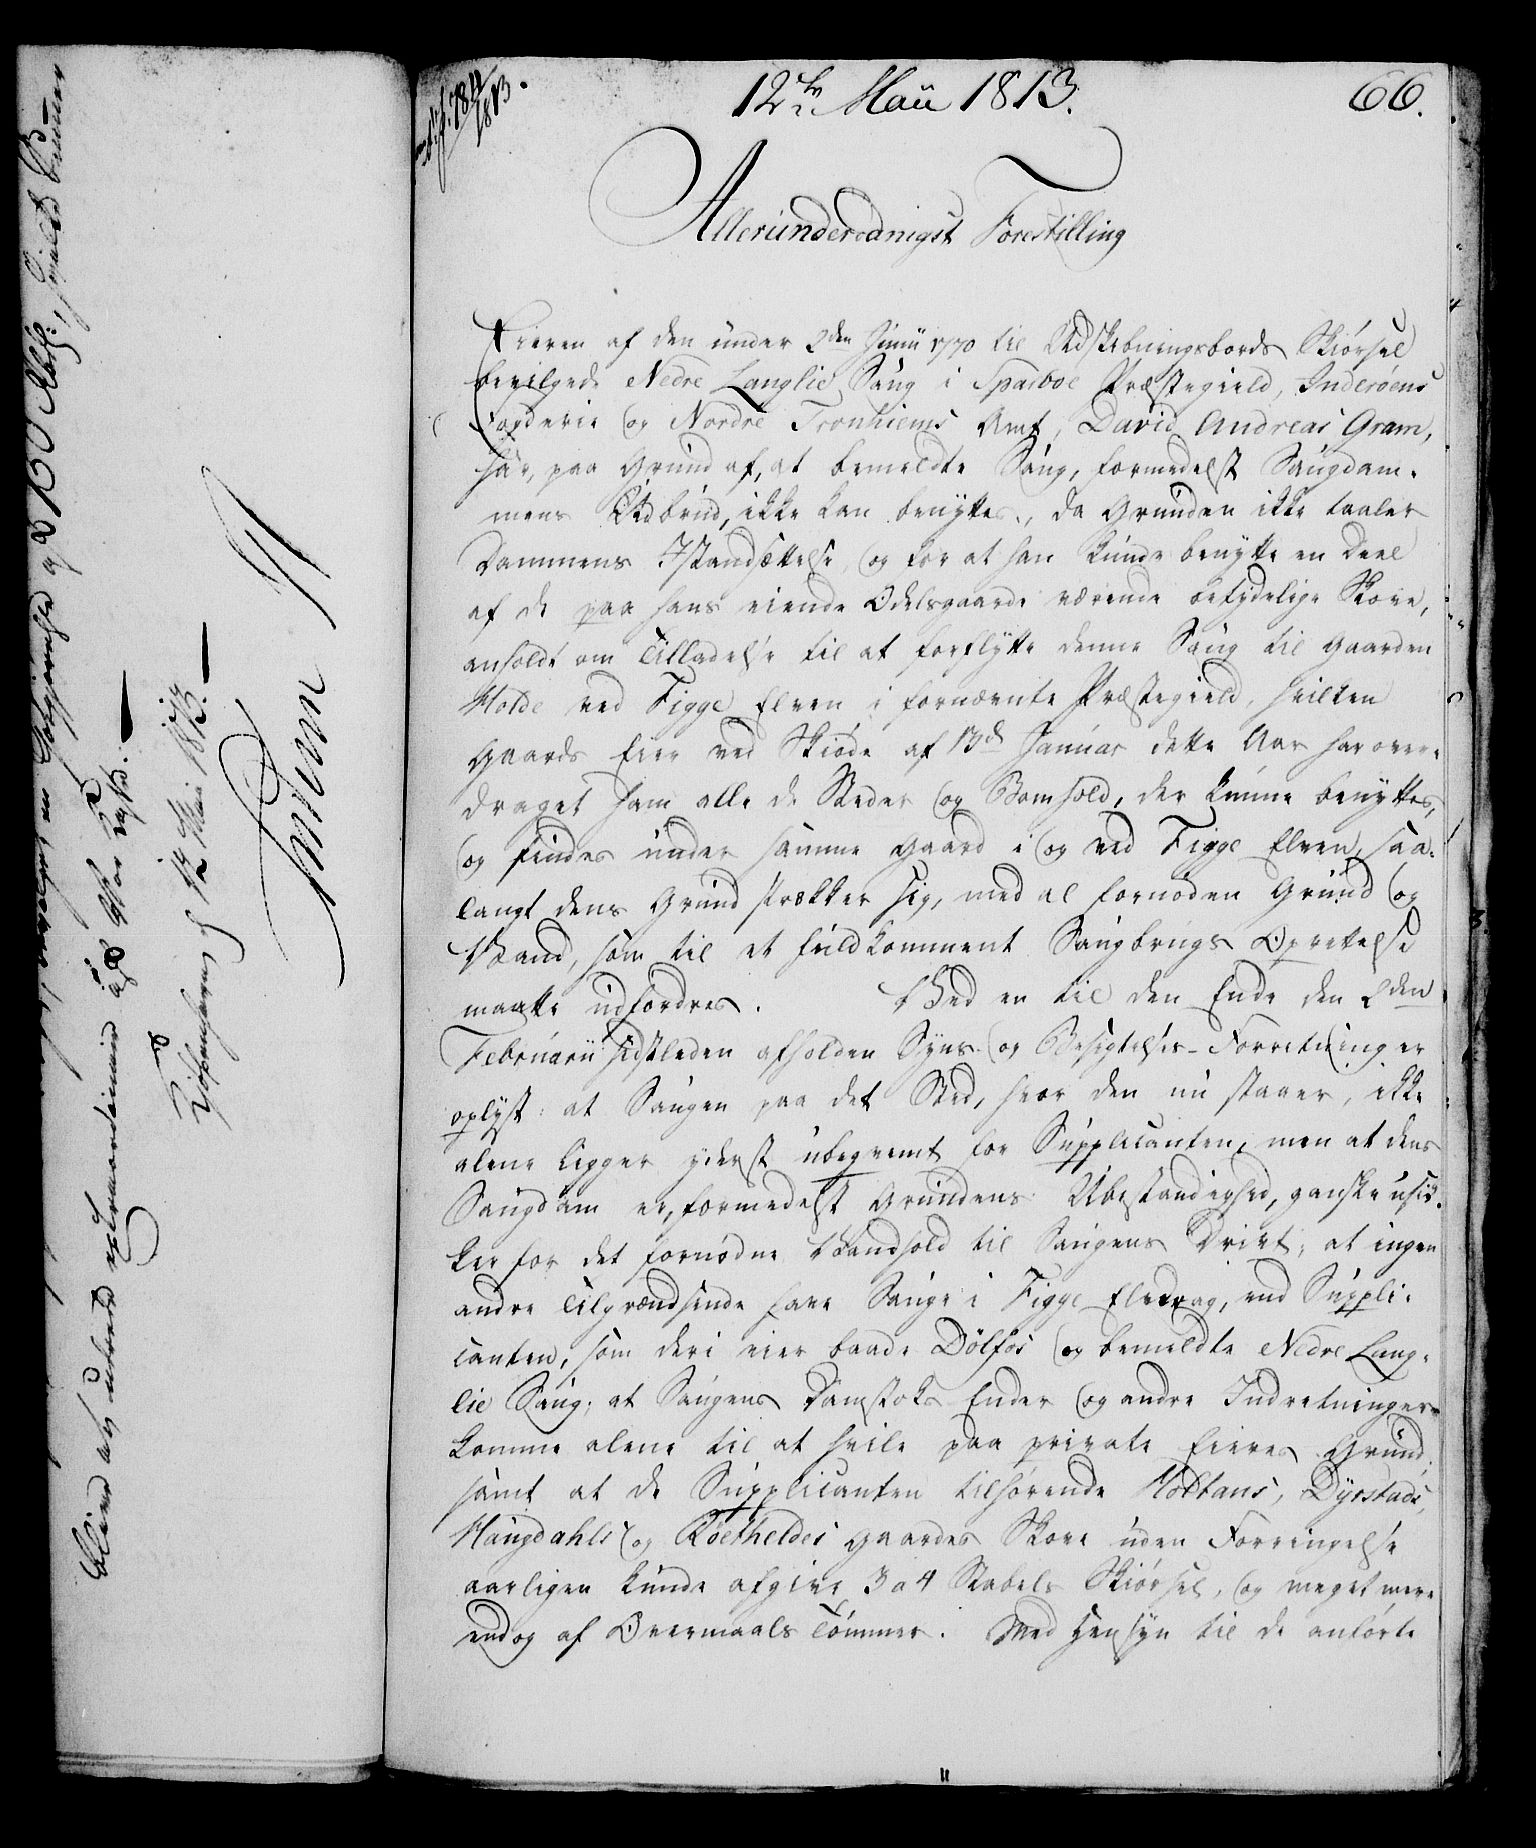 12te Maii 1813.
66.
Allerunderdanigst Forestilling
Eieren af den under 2den Junii 1770 til Udskibningsbords Skiørsel
bevilgede Nedre Langlie Saug i Sparboe Præstegield, Inderøens
Fogderie og Nordre Tronhiems Amt, David Andreas Gram,
har, paa Grund af, at bemeldte Saug, formedelst Saugdam-
mens Udbrud, ikke kan benyttes, da Grunden ikke taaler
Dammens Istandsættelse, og for at han kunde benytte en Deel
af de paa hans eiende Odelsgaarde værende betydelige Skove,
anholdt om Tilladelse til at forflytte denne Saug til Gaarden
Holde ved Figge Elven i fornævnte Præstegield, hvilken
Gaards Eier ved Skiøde af 13de Januar dette Aar har over-
draget ham alle de Steder og Bomhold, der kunne benyttes,
og findes under samme Gaard i og ved Figge Elven, saa-
langt dens Grund strækker sig, med al fornøden Grund og
Vand, som til et fuldkomment Saugbrugs Oprettelse
maatte udfordres. Ved en til den Ende den 2den
Februarii sidstleden afholden Syns- og Besigtelses-Forretning er
oplyst: at Saugen paa det Sted, hvor den nu staaer, ikke
alene ligger yderst ubeqvemt for Supplicanten, men at dens
Saugdam er, formedelst Grundens Ubestandighed, ganske usik-
ker for det fornødne Vandhold til Saugens Drivt; at ingen
andre Tilgrændsende have Sauge i Figge Elvedrag, end Suppli-
canten, som deri eier baade Dølfos og bemeldte Nedre Lang-
lie Saug; at Saugens Damstoks Ender og andre Indretninger
komme alene til at hvile paa private Eieres Grund;
samt at de Supplicanten tilhørende Holtans, Dyrstads,
Haugdahls og Roeheldes Gaardes Skove uden Forringelse
aarligen kunde afgive 3 a 4 Stabels Skiørsel, og meget mere
endog af Overmaals Tømmer. Med Hensyn til de anførte